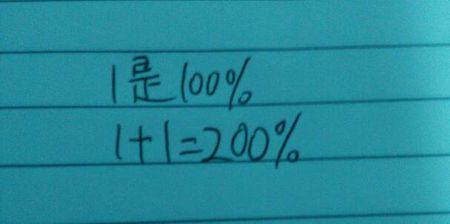 1是100%
1+1=200%